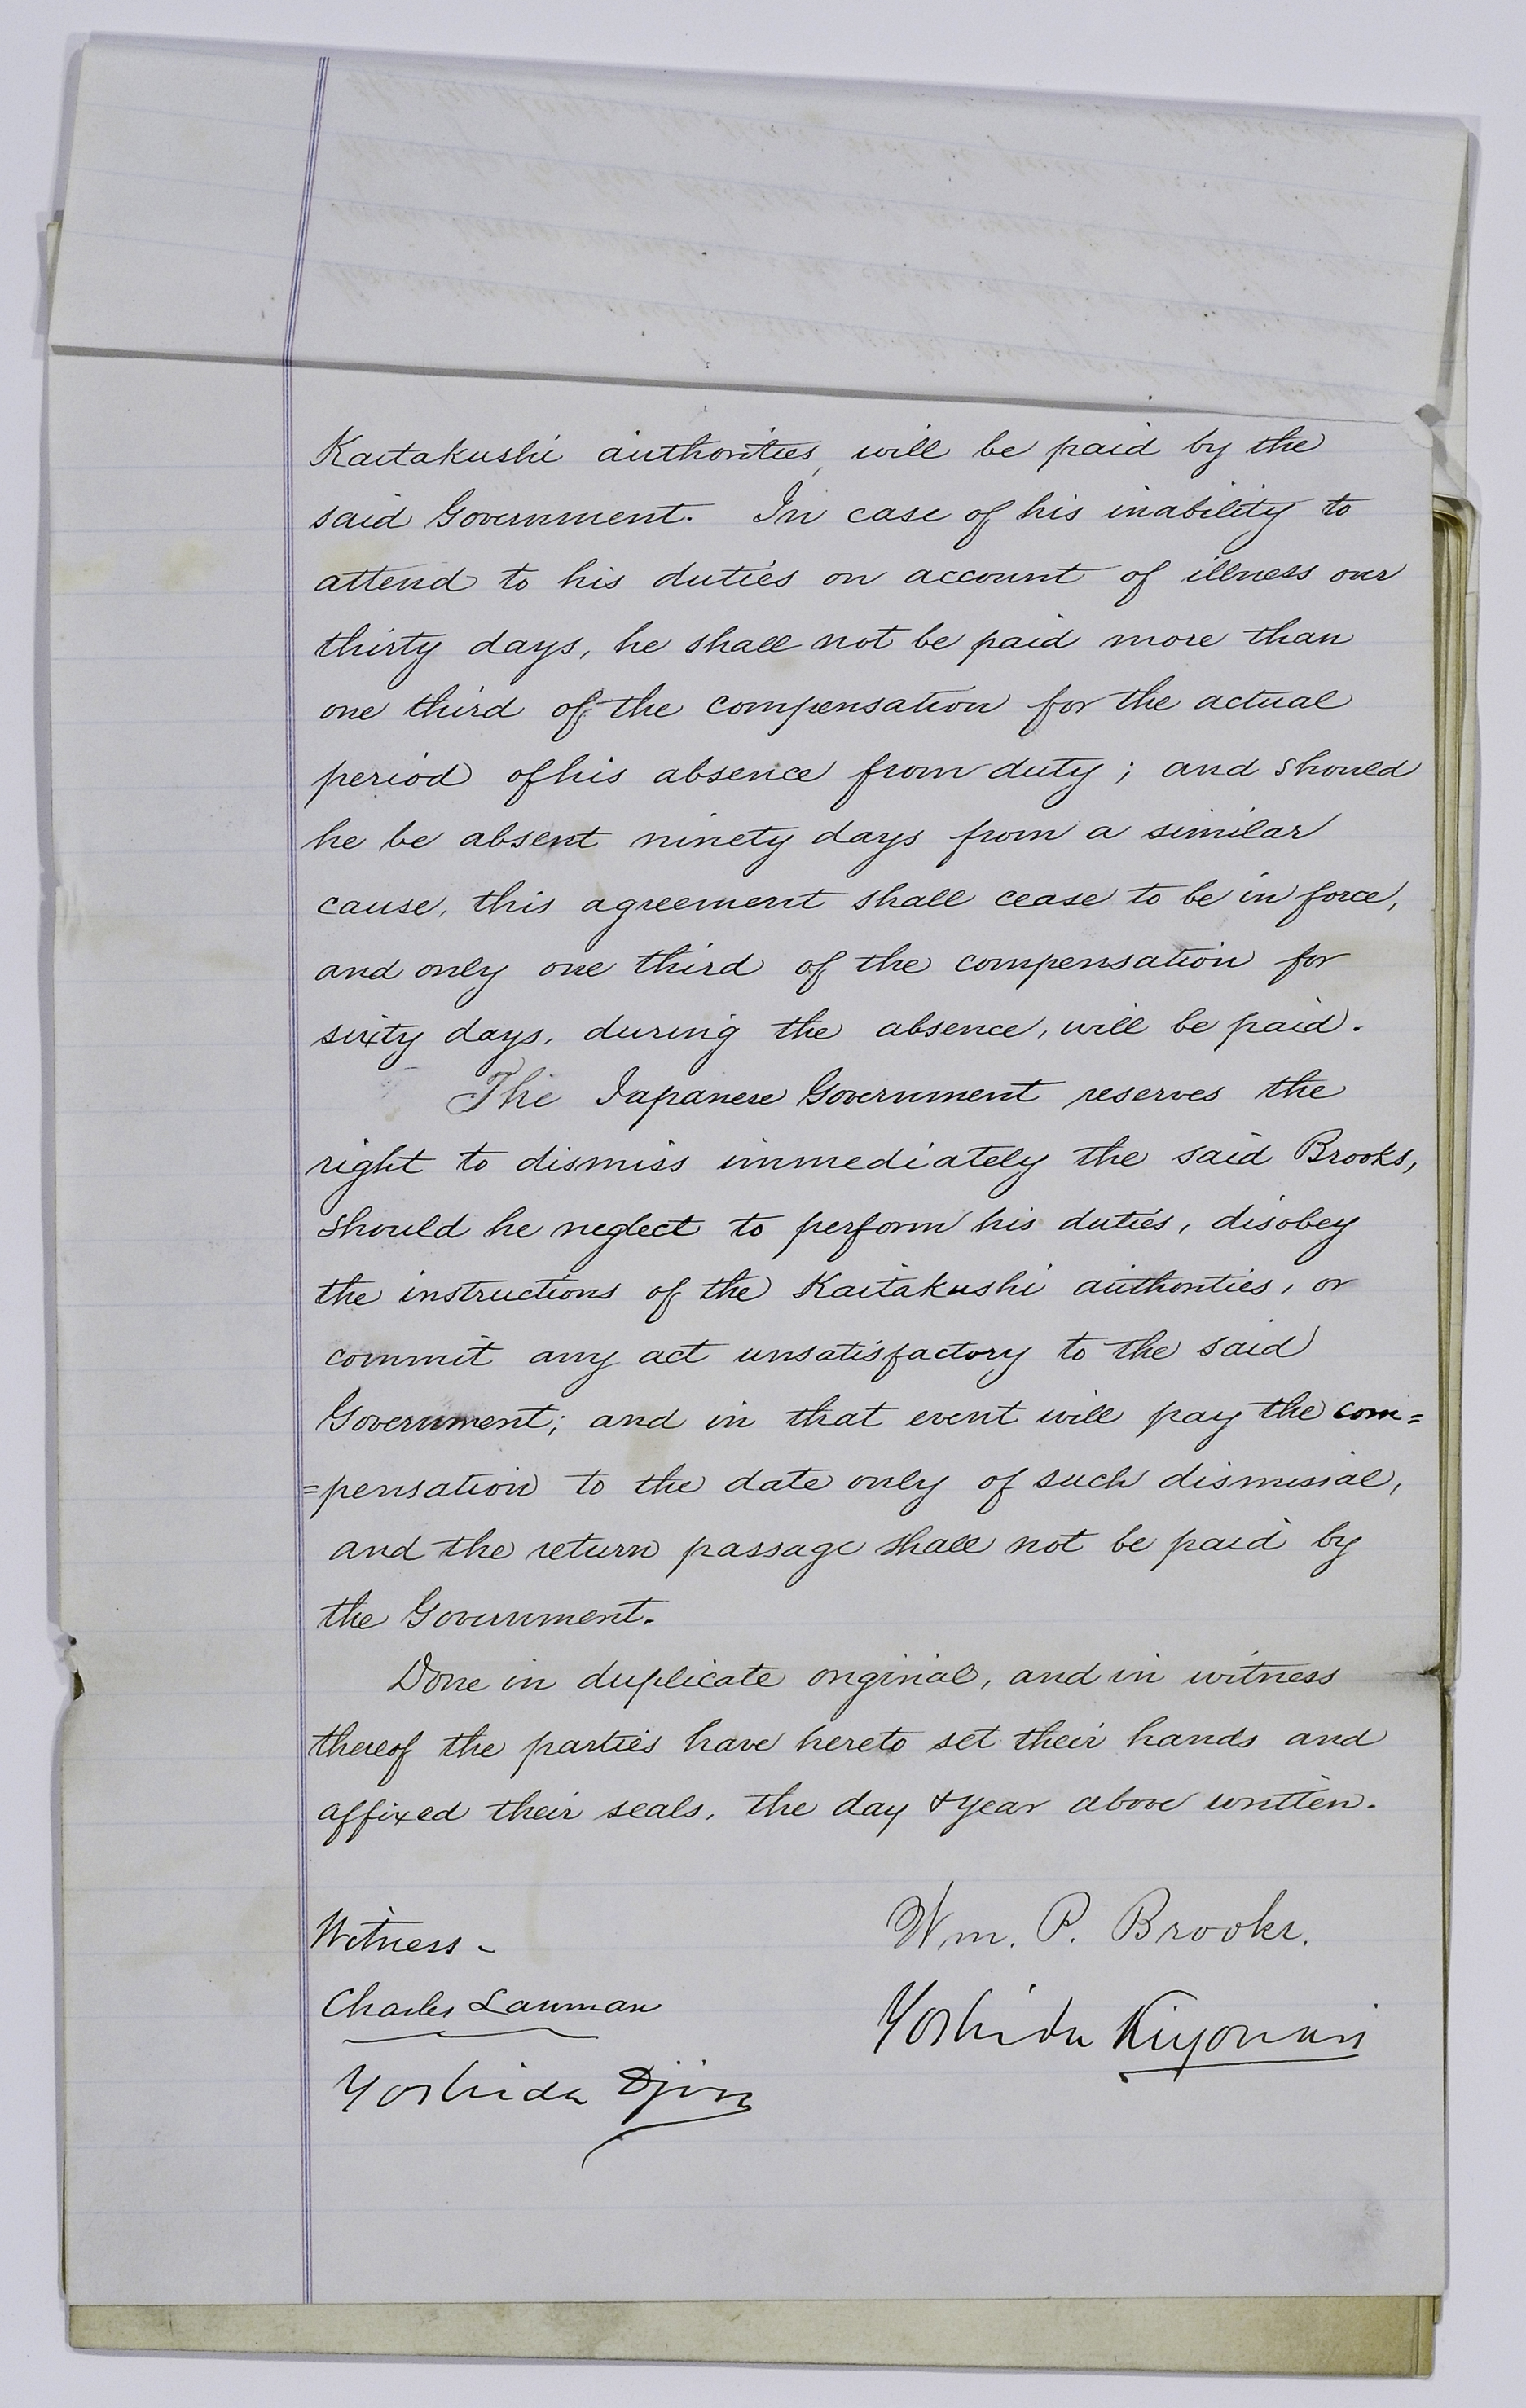 Kaitakushi authorities, will be paid by the
said Government. In case of his inability to
attend to his duties on account of illness over
thirty days, he shall not be paid more than
one third of the compensation for the actual
period of his absence from duty; and should
he be absent ninety days from a similar
cause, this agreement shall cease to be in force,
and only one third of the compensation for
sixty days, during the absence, will be paid.
The Japanese Government reserves the
right to dismiss immediately the said Brooks,
should he neglect to perform his duties, disobey
the instructions of the Kaitakushi authorities, or
commit any act unsatisfactory to the said
Government; and in that event will pay the com=
=pensation to the date only of such dismissal,
and the return passage shall not be paid by
the Government.
Done in duplicate original, and in witness
thereof the parties have hereto set their hands and
affixed their seals, the day & year above written.
Witness - Wm. P. Brooks.
Charles Lanman Yoshida Kiyonari
Yoshida